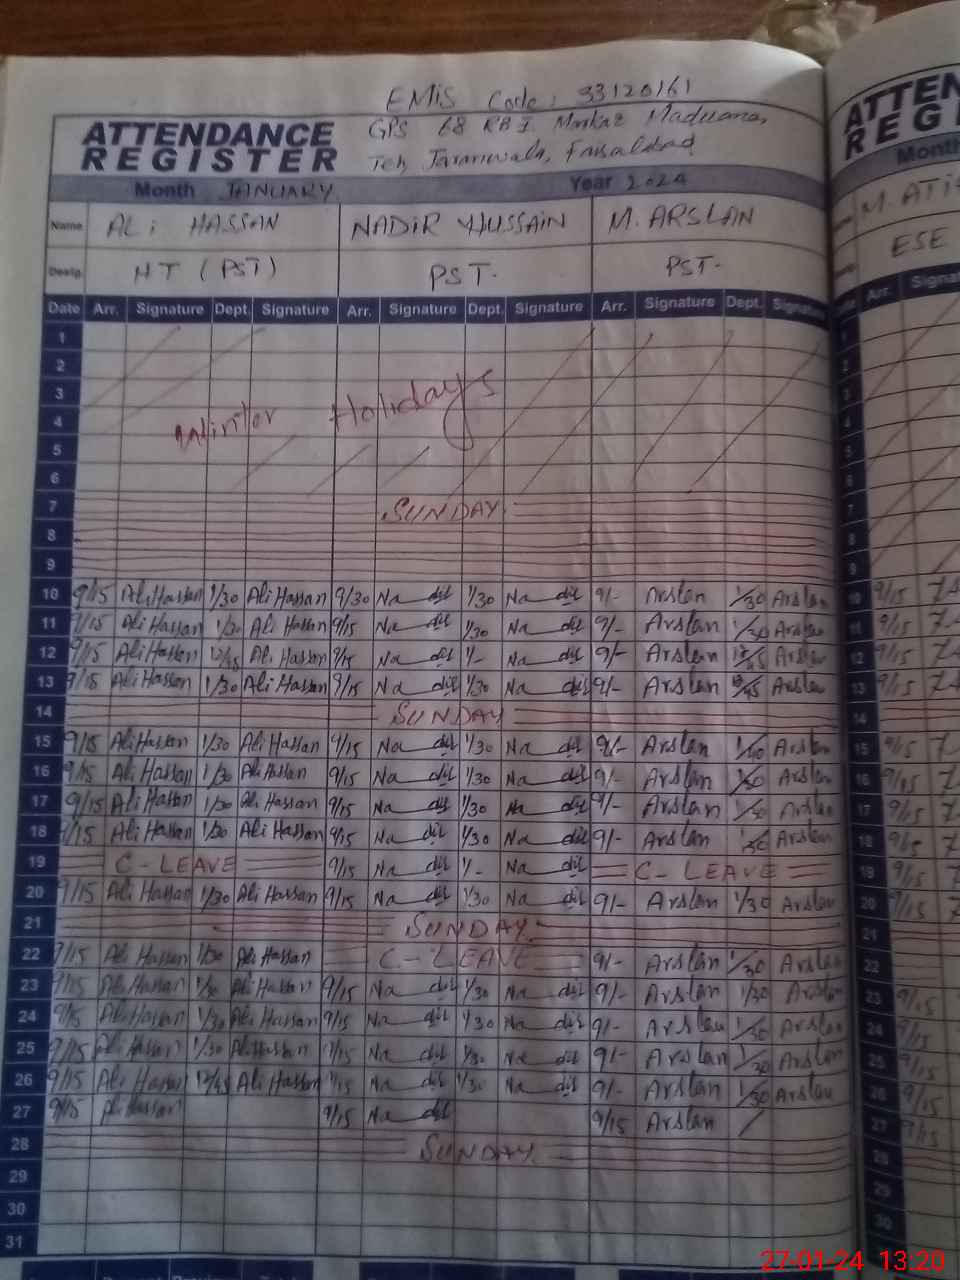 EMIS Code: 33120161
ATTENDANCE REGISTER
GPS 68 RB I Markaz Maduana,
Teh, Jaranwala, Faisalabad
Month JANUARY Year 2024
Name ALi HASSAN NADIR HUSSAIN M. ARSLAN
Desig. HT (PST) PST. PST.
Date Arr. Signature Dept. Signature Arr. Signature Dept. Signature Arr. Signature Dept. Signature
1
2
3
Winter Holidays
4
5
6
7 SUNDAY
8
9
10 9/15 Ali Hassan 1/30 Ali Hassan 9/30 Na dir 1/30 Na dir 9/- Arslan 1/30 Arslan
11 9/15 Ali Hassan 1/30 Ali Hassan 9/15 Na dir 1/30 Na dir 9/- Arslan 1/30 Arslan
12 9/15 Ali Hassan 12/45 Ali Hassan 9/15 Na dir 1/- Na dir 9/- Arslan 12/45 Arslan
13 9/15 Ali Hassan 1/30 Ali Hassan 9/15 Na dir 1/30 Na dir 9/- Arslan Arslan
14 SUNDAY
15 9/15 Ali Hassan 1/30 Ali Hassan 9/15 Na dir 1/30 Na dir 9/- Arslan Arslan
16 9/15 Ali Hassan 1/30 Ali Hassan 9/15 Na dir 1/30 Na dir 9/- Arslan Arslan
17 9/15 Ali Hassan 1/30 Ali Hassan 9/15 Na dir 1/30 Na dir 9/- Arslan Arslan
18 9/15 Ali Hassan 1/30 Ali Hassan 9/15 Na dir 1/30 Na dir 9/- Arslan Arslan
19 C-LEAVE 9/15 Na dir 1/- Na dir C-LEAVE
20 9/15 Ali Hassan 1/30 Ali Hassan 9/15 Na dir 1/30 Na dir 9/- Arslan 1/30 Arslan
21 SUNDAY
22 9/15 Ali Hassan 1/30 Ali Hassan C-LEAVE 9/- Arslan 1/30 Arslan
23 9/15 Ali Hassan 1/30 Ali Hassan 9/15 Na dir 1/30 Na dir 9/- Arslan 1/30 Arslan
24 9/15 Ali Hassan 1/30 Ali Hassan 9/15 Na dir 1/30 Na dir 9/- Arslan 1/30 Arslan
25 9/15 Ali Hassan 1/30 Ali Hassan 9/15 Na dir 1/30 Na dir 9/- Arslan 1/30 Arslan
26 9/15 Ali Hassan 12/45 Ali Hassan 9/15 Na dir 1/30 Na dir 9/- Arslan 1/30 Arslan
27 9/15 Ali Hassan 9/15 Na dir 9/15 Arslan
28 SUNDAY
29
30
31
Month
ESE
Arr.
10 9/15
11 9/15
12 9/15
13 9/15
14
15 9/15
16 9/15
17 9/15
18 9/15
19 9/15
20 9/15
21
22
23 9/15
24 9/15
25 9/15
26 9/15
27 9/15
28
29
30
27-01-24 13:20